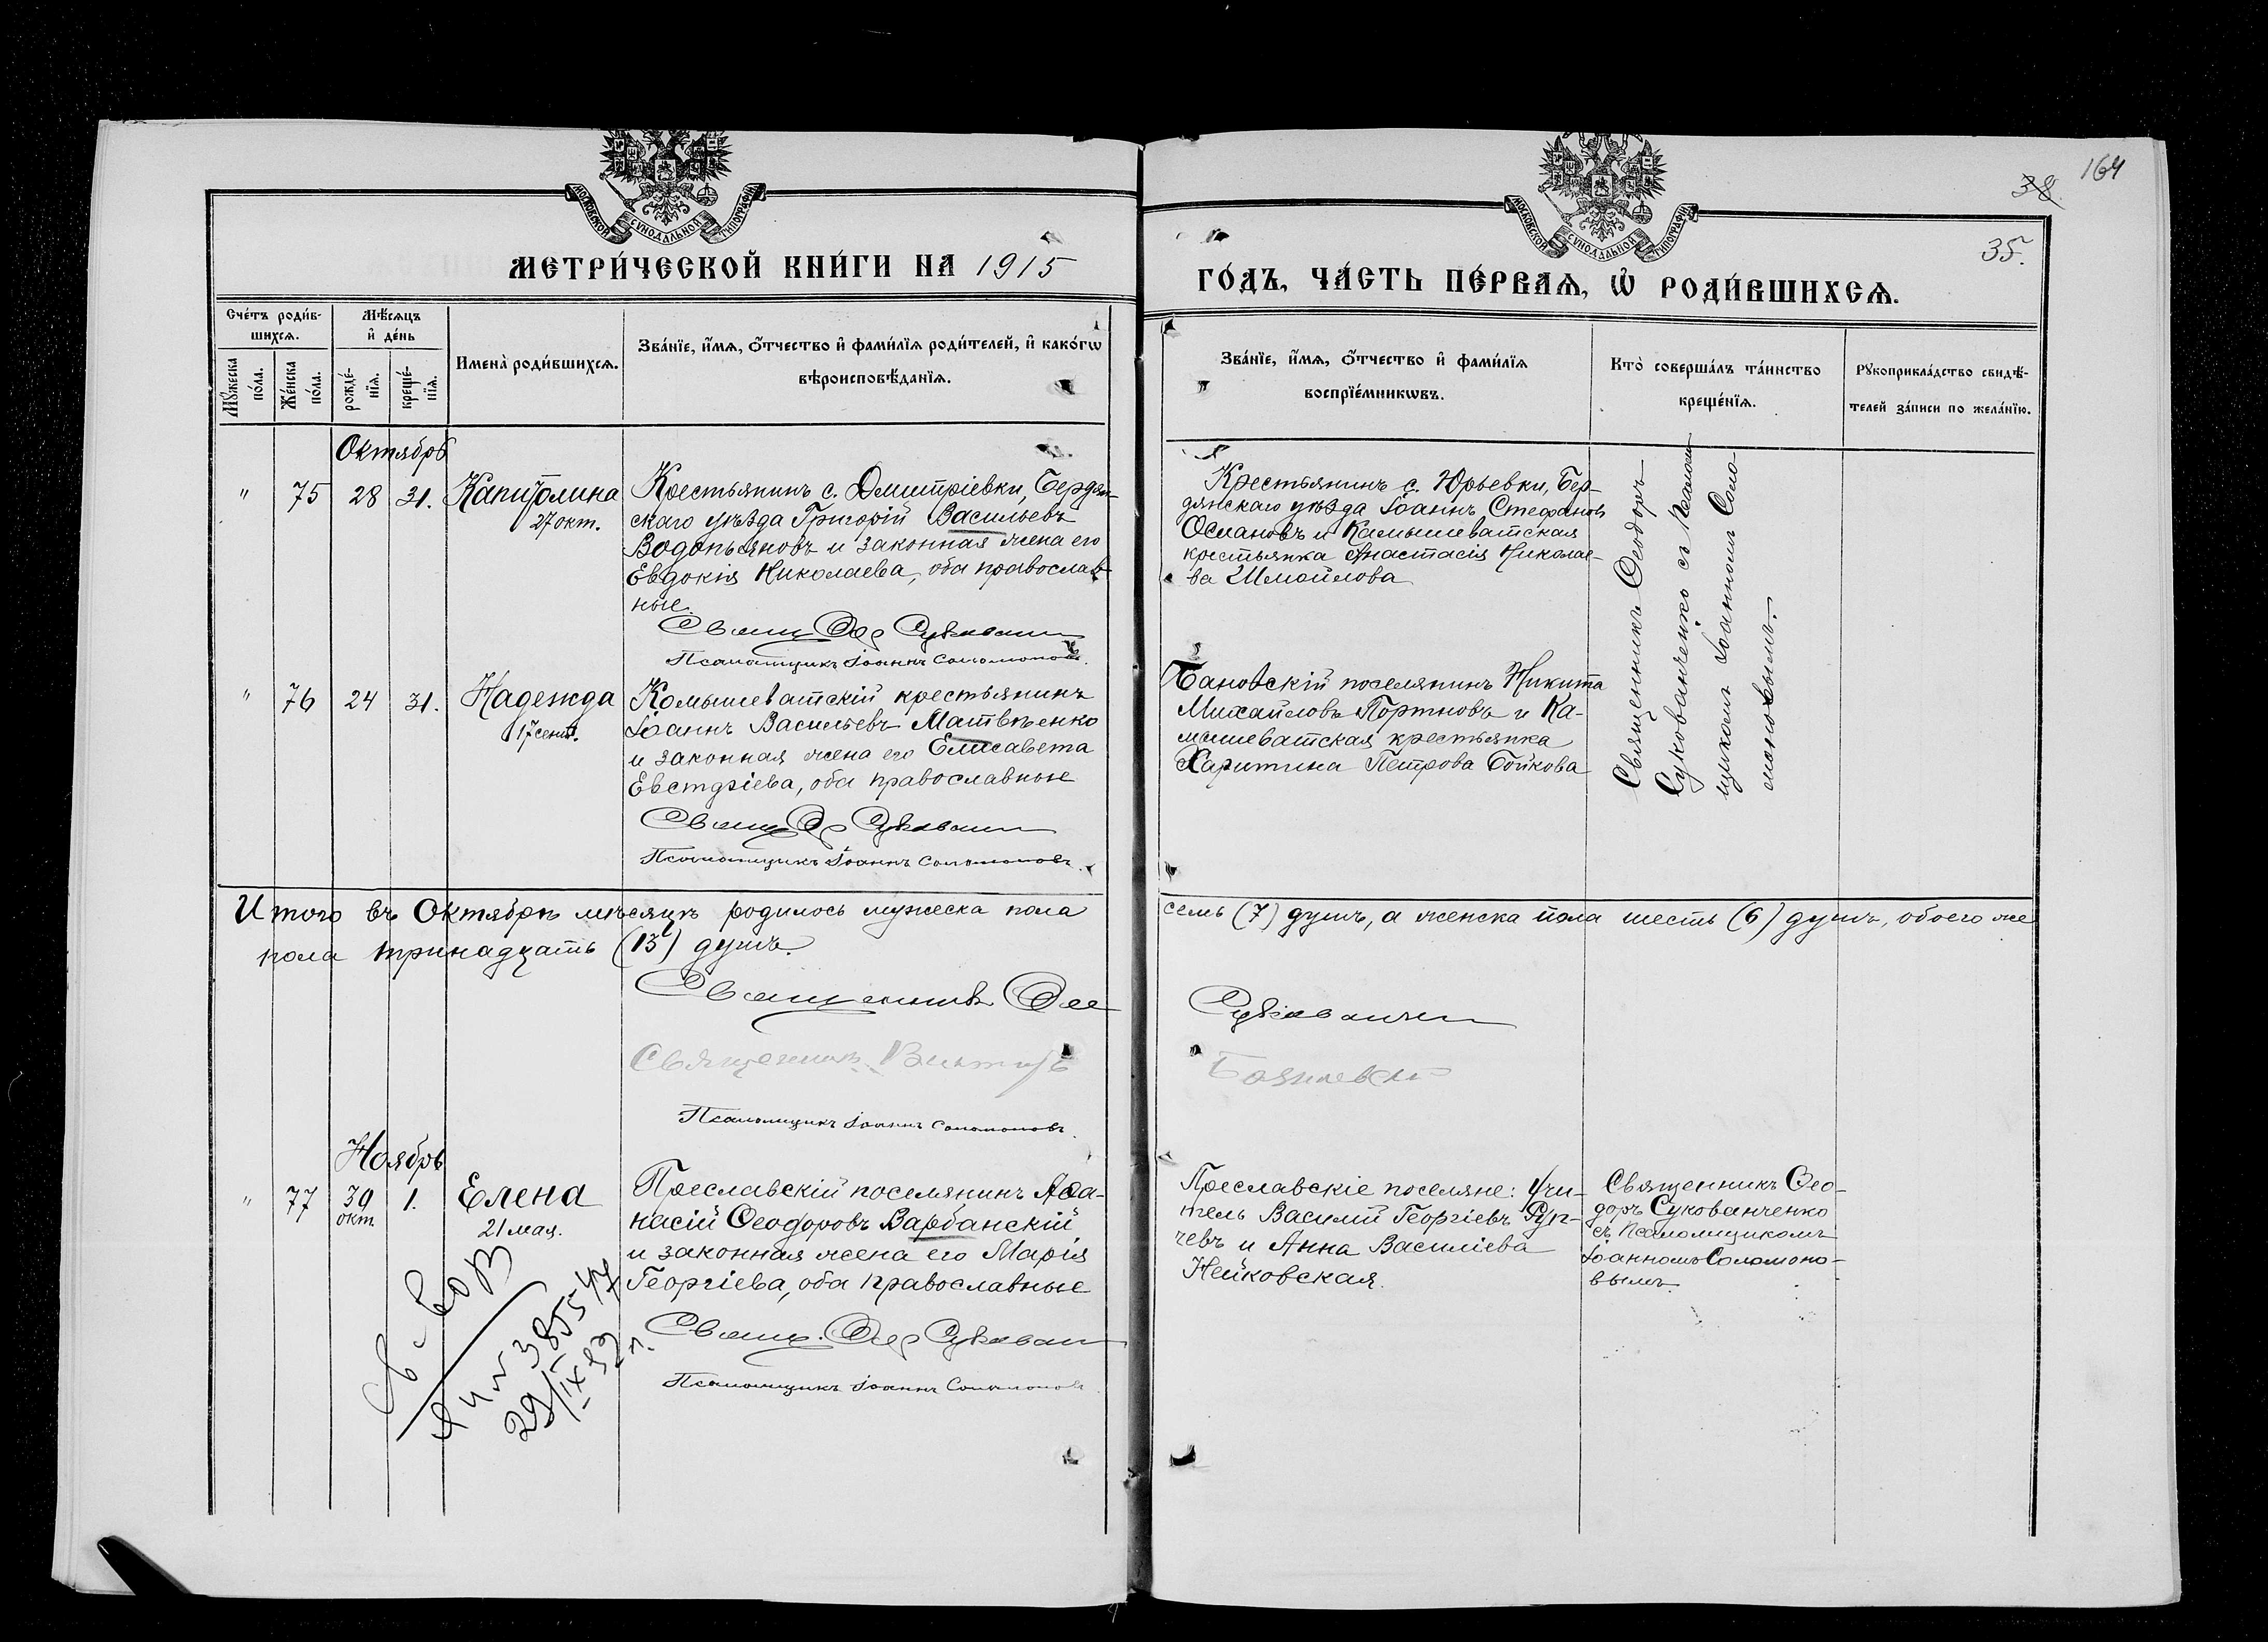 164
38.
35.
МОСКОВСКОЙ СѴНОДАЛЬНОЙ ТИПОГРАФІИ
МОСКОВСКОЙ СѴНОДАЛЬНОЙ ТИПОГРАФІИ
МЕТРИ́ЧЕСКОЙ КНИ́ГИ НА 1915
ГО́ДЪ, ЧА́СТЬ ПЕ́РВАѦ, Ѡ҆ РОДИ́ВШИХСѦ.
Сче́тъ роди́в-
шихсѧ.
Мѣ́сѧцъ
и҆ де́нь
Мꙋ́жеска
по́ла.
Же́нска
по́ла.
рожде́-
нїѧ.
креще́-
нїѧ.
Имена̀ роди́вшихсѧ.
Зва́нїе, и҆́мѧ, ѻ҆́тчество и҆ фами́лїѧ роди́телей, и҆ како́гѡ
вѣроисповѣ́данїѧ.
Зва́нїе, и҆́мѧ, ѻ҆́тчество и҆ фами́лїѧ
воспрїе́мникѡвъ.
Кто̀ соверша́лъ та́инство
креще́нїѧ.
Рꙋкоприкла́дство свидѣ́-
телей за́писи по жела́нїю.
Октябрь
" 75 28 31. Капитолина
27 окт.
Крестьянинъ с. Дмитріевки, Бердян-
скаго уѣзда Григорій Васильевъ
Водопьяновъ и законная жена его
Евдокія Николаева, оба православ-
ные.
Свящ. Ѳео Сукован
Псаломщикъ Іоаннъ Соломоновъ.
Крестьянинъ с. Юрьевки, Бер-
дянскаго уѣзда Іоаннъ Стефановъ
Османовъ и Камышеватская
крестьянка Анастасія Николае-
ва Шмойлова
Священникъ Ѳеодоръ
Сукованченко съ Псалом-
щикомъ Іоанномъ Соло-
моновымъ.
" 76 24 31. Надежда
17 сент.
Комышеватскій крестьянинъ
Іоаннъ Васильевъ Матвѣенко
и законная жена его Елисавета
Евстафіева, оба православные
Свящ Ѳео Сукован
Псаломщикъ Іоаннъ Соломоновъ.
Бановскій поселянинъ Никита
Михайловъ Портновъ и Ка-
мышеватская крестьянка
Харитина Петрова Бойкова
Итого въ Октябрѣ мѣсяцѣ родилось мужеска пола семь (7) душъ, а женска пола шесть (6) душъ, обоего же
пола тринадцать (13) душъ.
Священникъ Ѳео Сукованчен
Священникъ Викторъ
Псаломщикъ Іоаннъ Соломоновъ.
Ноябрь
" 77 30 1. Елена
окт.
21 мая.
Преславскій поселянинъ Аѳа-
насій Ѳеодоровъ Варбанскій
и законная жена его Марія
Георгіева, оба православные
Свящ. Ѳео Сукован
Псаломщикъ Іоаннъ Соломоновъ
Преславскіе поселяне: Учи-
тель Василій Георгіевъ Руп-
чевъ и Анна Василіева
Нейковская.
Священникъ Ѳео-
доръ Сукованченко
съ Псаломщикомъ
Іоанномъ Соломоно-
вымъ.